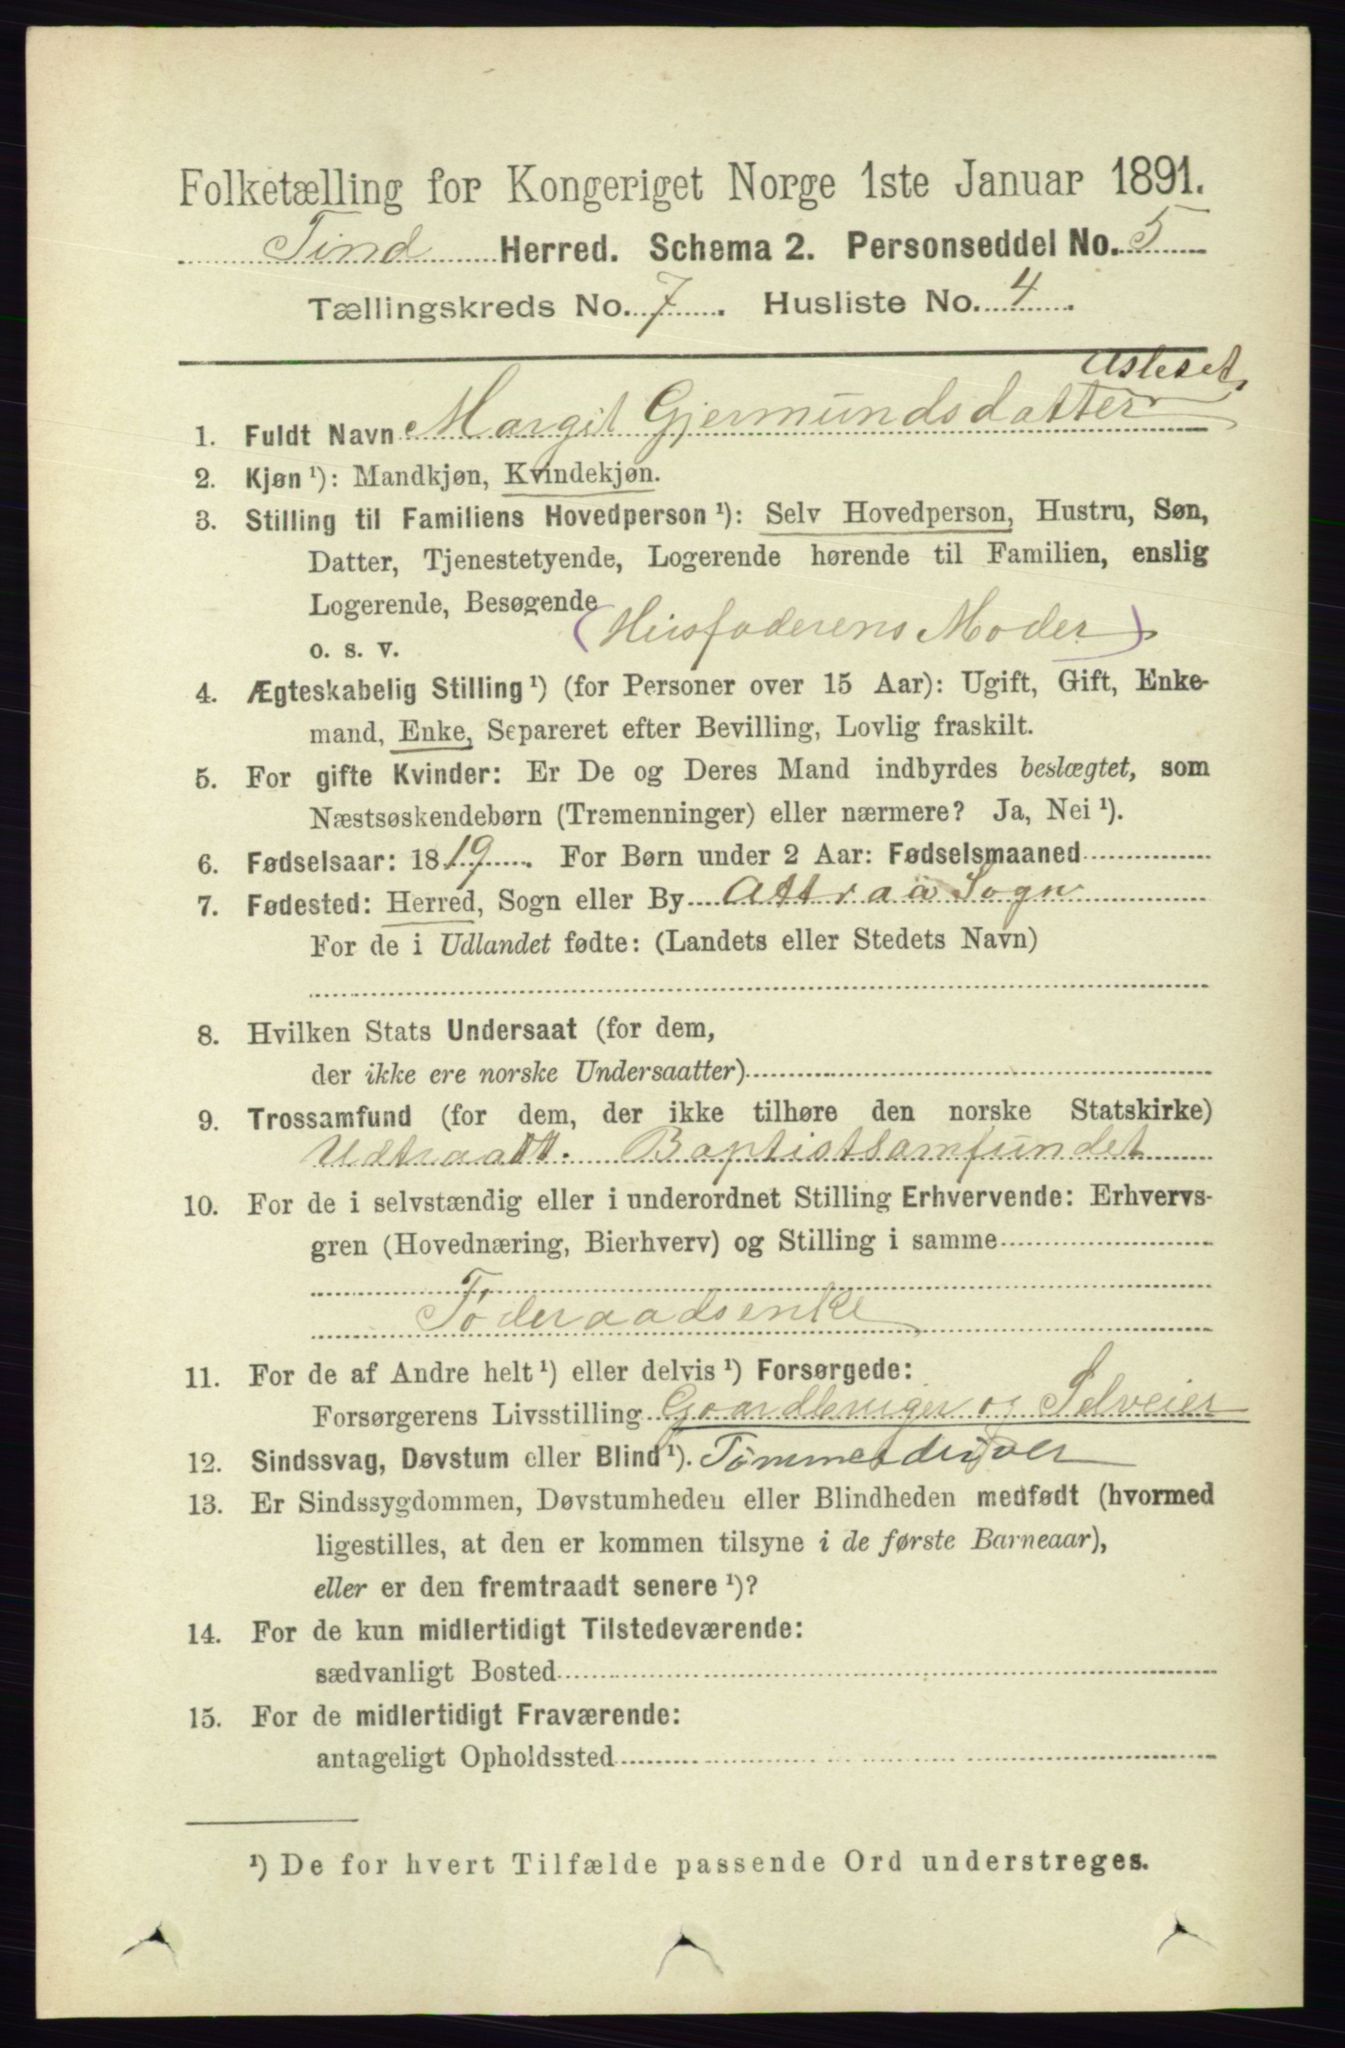 Folketælling for Kongeriget Norge 1ste Januar 1891.
Tind Herred. Schema 2. Personseddel No. 5
Tællingskreds No. 7. Husliste No. 4.
1. Fuldt Navn Margit Gjermundsdatter
2. Kjøn ¹): Mandkjøn, Kvindekjøn.
3. Stilling til Familiens Hovedperson ¹): Selv Hovedperson, Hustru, Søn,
Datter, Tjenestetyende, Logerende hørende til Familien, enslig
Logerende, Besøgende
o. s. v. (Husfaderens Moder)
4. Ægteskabelig Stilling ¹) (for Personer over 15 Aar): Ugift, Gift, Enke-
mand, Enke, Separeret efter Bevilling, Lovlig fraskilt.
5. For gifte Kvinder: Er De og Deres Mand indbyrdes beslægtet, som
Næstsøskendebørn (Tremenninger) eller nærmere? Ja, Nei ¹).
6. Fødselsaar: 1819. For Børn under 2 Aar: Fødselsmaaned
7. Fødested: Herred, Sogn eller By Attraa Sogn
For de i Udlandet fødte: (Landets eller Stedets Navn)
8. Hvilken Stats Undersaat (for dem,
der ikke ere norske Undersaatter)
9. Trossamfund (for dem, der ikke tilhøre den norske Statskirke)
Udtraadt. Baptistsamfundet
10. For de i selvstændig eller i underordnet Stilling Erhvervende: Erhvervs-
gren (Hovednæring, Bierhverv) og Stilling i samme
Føderaadsenke
11. For de af Andre helt ¹) eller delvis ¹) Forsørgede:
Forsørgerens Livsstilling Gaardbruger og Selveier
12. Sindssvag, Døvstum eller Blind ¹). Tømmerdriver
13. Er Sindssygdommen, Døvstumheden eller Blindheden medfødt (hvormed
ligestilles, at den er kommen tilsyne i de første Barneaar),
eller er den fremtraadt senere ¹)?
14. For de kun midlertidigt Tilstedeværende:
sædvanligt Bosted
15. For de midlertidigt Fraværende:
antageligt Opholdssted
¹) De for hvert Tilfælde passende Ord understreges.